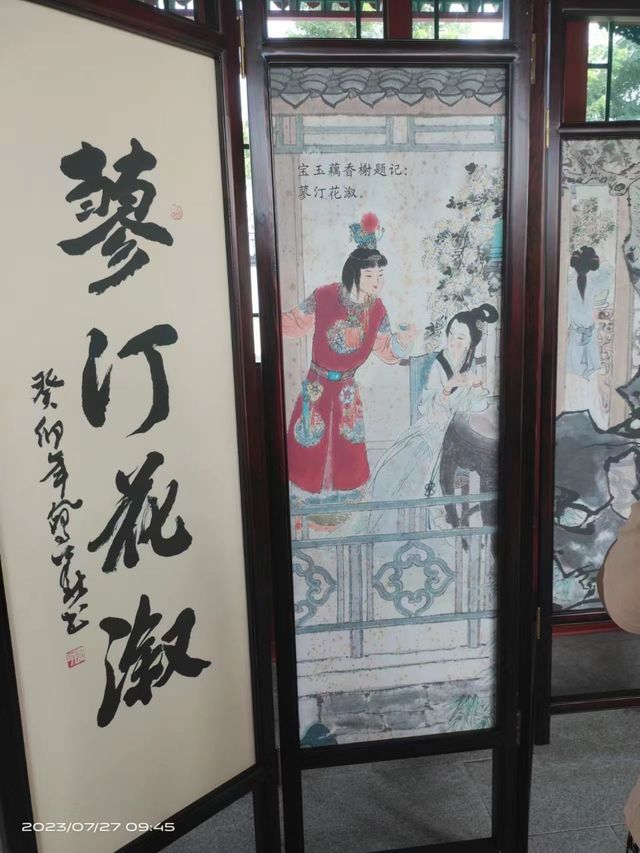 蓼汀花溆
癸卯年
宝玉藕香榭题记：
蓼汀花溆。
2023/07/27 09:45